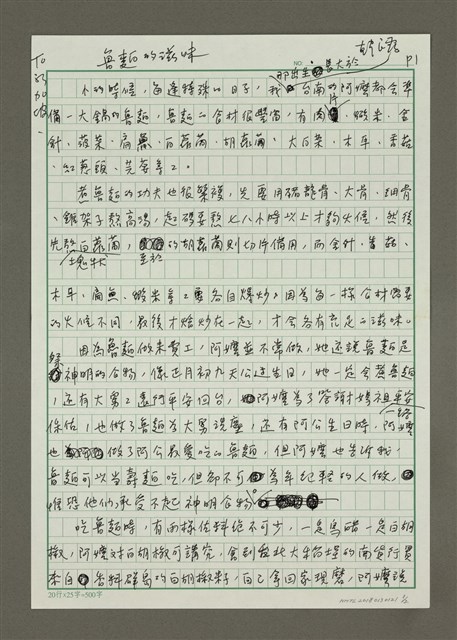 魯麵的滋味
胡長松
P1
NO.
小的時候，每逢特殊的日子，我台南的阿嬤都會準
那出生、長大於
備一大鍋的魯麵，魯麵的食材很豐富，有肉片、蝦米、金
針、菠菜、扁魚、白蘿蔔、胡蘿蔔、大白菜、木耳、香菇
、紅蔥頭、芫荽等等。
煮魯麵的功夫也很繁複，先要用豬龍骨、大骨、細骨
、雞架子熬高湯，起碼要熬七八小時以上才夠火候，然後
先熬白蘿蔔，的胡蘿蔔則切片備用，而金針、香菇、
塊狀
至於
木耳、扁魚、蝦米等等要各自爆炒，因為每一樣食材需要
的火候不同，最後才燴炒在一起，才會各有充足的滋味。
因為魯麵做來費工，阿嬤並不常做，她還說魯麵是
神明的食物，像正月初九天公生日，她一定會煮魯麵
，還有大舅從軍平安回台，阿嬤為了答謝媽祖
保佑，也做了魯麵為大舅洗塵，還有阿公生日時，阿嬤
也做了阿公最愛吃的魯麵，但阿嬤也告訴我，
魯麵可以當壽麵吃，但卻不為年紀輕的人做，
唯恐他們承受不起神明食物。
吃魯麵時，有兩樣佐料絕不可少，一是烏醋一是白胡
椒，阿嬤對白胡椒可講究，會到台北大稻埕的南北行買
來自香料群島的白胡椒子，自己拿回家現磨，阿嬤說
20行×25字=500字